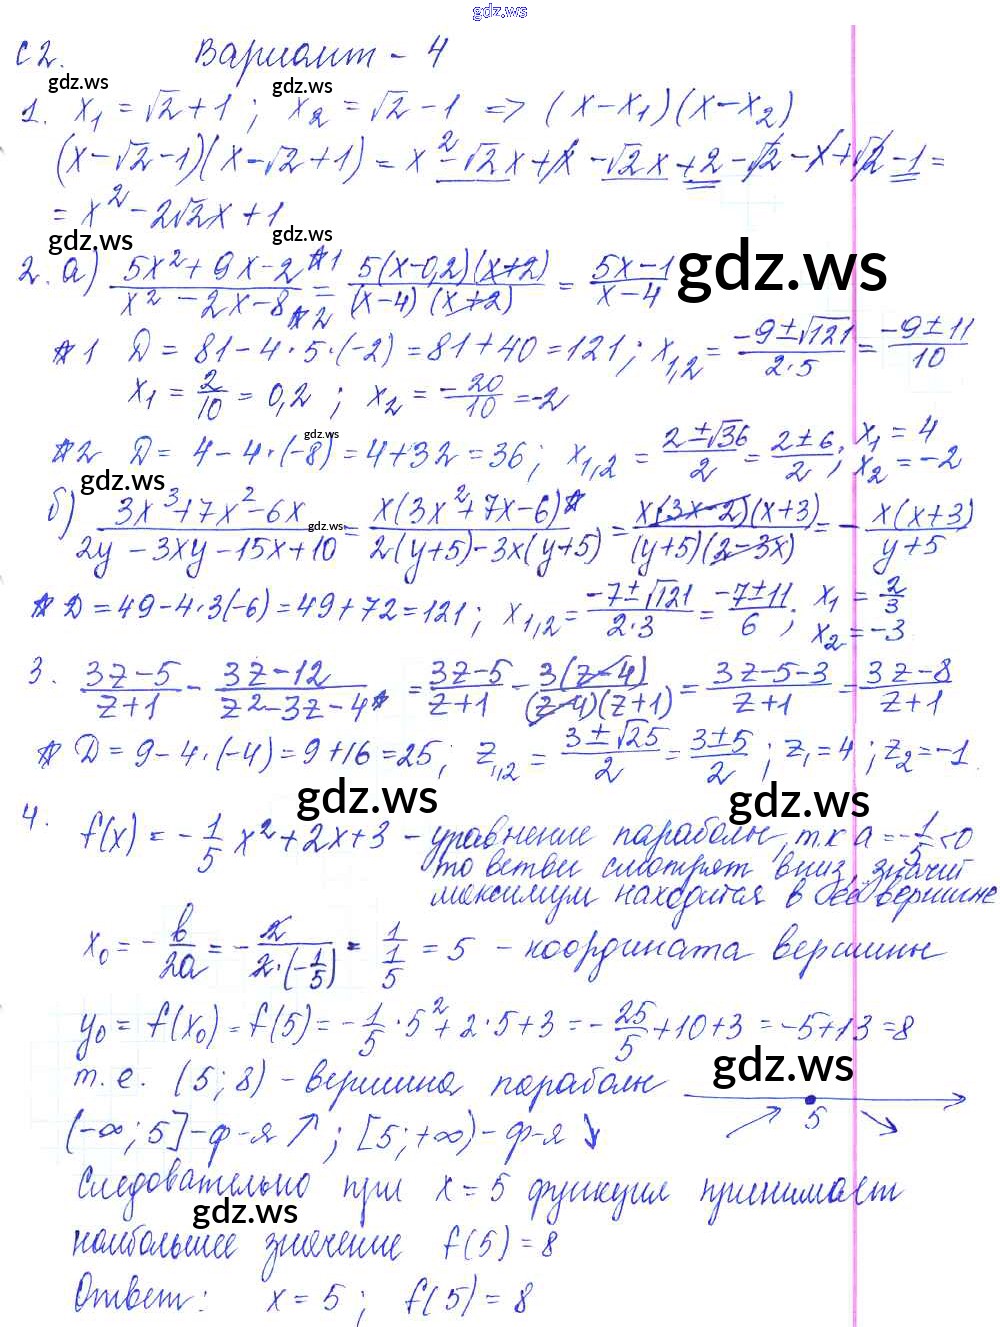 gdz.ws
С2. Вариант - 4
gdz.ws gdz.ws
1. x₁ = √2 + 1 ; x₂ = √2 - 1 => (x - x₁)(x - x₂)
(x - √2 - 1)(x - √2 + 1) = x² - √2x + x - √2x + 2 - √2 - x + √2 - 1 =
= x² - 2√2x + 1
gdz.ws gdz.ws gdz.ws
2. а) (5x² + 9x - 2 *1)/(x² - 2x - 8 *2) = (5(x - 0,2)(x + 2))/((x - 4)(x + 2)) = (5x - 1)/(x - 4)
*1 D = 81 - 4 · 5 · (-2) = 81 + 40 = 121 ; x₁,₂ = (-9 ± √121)/(2·5) = (-9 ± 11)/10
x₁ = 2/10 = 0,2 ; x₂ = -20/10 = -2
gdz.ws
*2 D = 4 - 4 · (-8) = 4 + 32 = 36 ; x₁,₂ = (2 ± √36)/2 = (2 ± 6)/2 ; x₁ = 4 x₂ = -2
gdz.ws
б) (3x³ + 7x² - 6x)/(2y - 3xy - 15x + 10) = (x(3x² + 7x - 6)*)/(2(y + 5) - 3x(y + 5)) = (x(3x - 2)(x + 3))/((y + 5)(2 - 3x)) = - (x(x + 3))/(y + 5)
gdz.ws
* D = 49 - 4 · 3(-6) = 49 + 72 = 121 ; x₁,₂ = (-7 ± √121)/(2·3) = (-7 ± 11)/6 ; x₁ = 2/3 x₂ = -3
3. (3z - 5)/(z + 1) - (3z - 12)/(z² - 3z - 4*) = (3z - 5)/(z + 1) - (3(z - 4))/((z - 4)(z + 1)) = (3z - 5 - 3)/(z + 1) = (3z - 8)/(z + 1)
* D = 9 - 4 · (-4) = 9 + 16 = 25 ; z₁,₂ = (3 ± √25)/2 = (3 ± 5)/2 ; z₁ = 4 ; z₂ = -1
gdz.ws gdz.ws
4. f(x) = - 1/5 x² + 2x + 3 - уравнение параболы, т.к a = -1/5 < 0
то ветви смотрят вниз, значит
максимум находится в её вершине
x₀ = - в/2a = - 2/(2·(-1/5)) = 1/(1/5) = 5 - координата вершины
y₀ = f(x₀) = f(5) = - 1/5 · 5² + 2 · 5 + 3 = - 25/5 + 10 + 3 = -5 + 13 = 8
gdz.ws
т. е. (5; 8) - вершина параболы
5
(-∞; 5] - ф-я ↗ ; [5; +∞) - ф-я ↘
Следовательно при x = 5 функция принимает
gdz.ws
наибольшее значение f(5) = 8
Ответ: x = 5 ; f(5) = 8